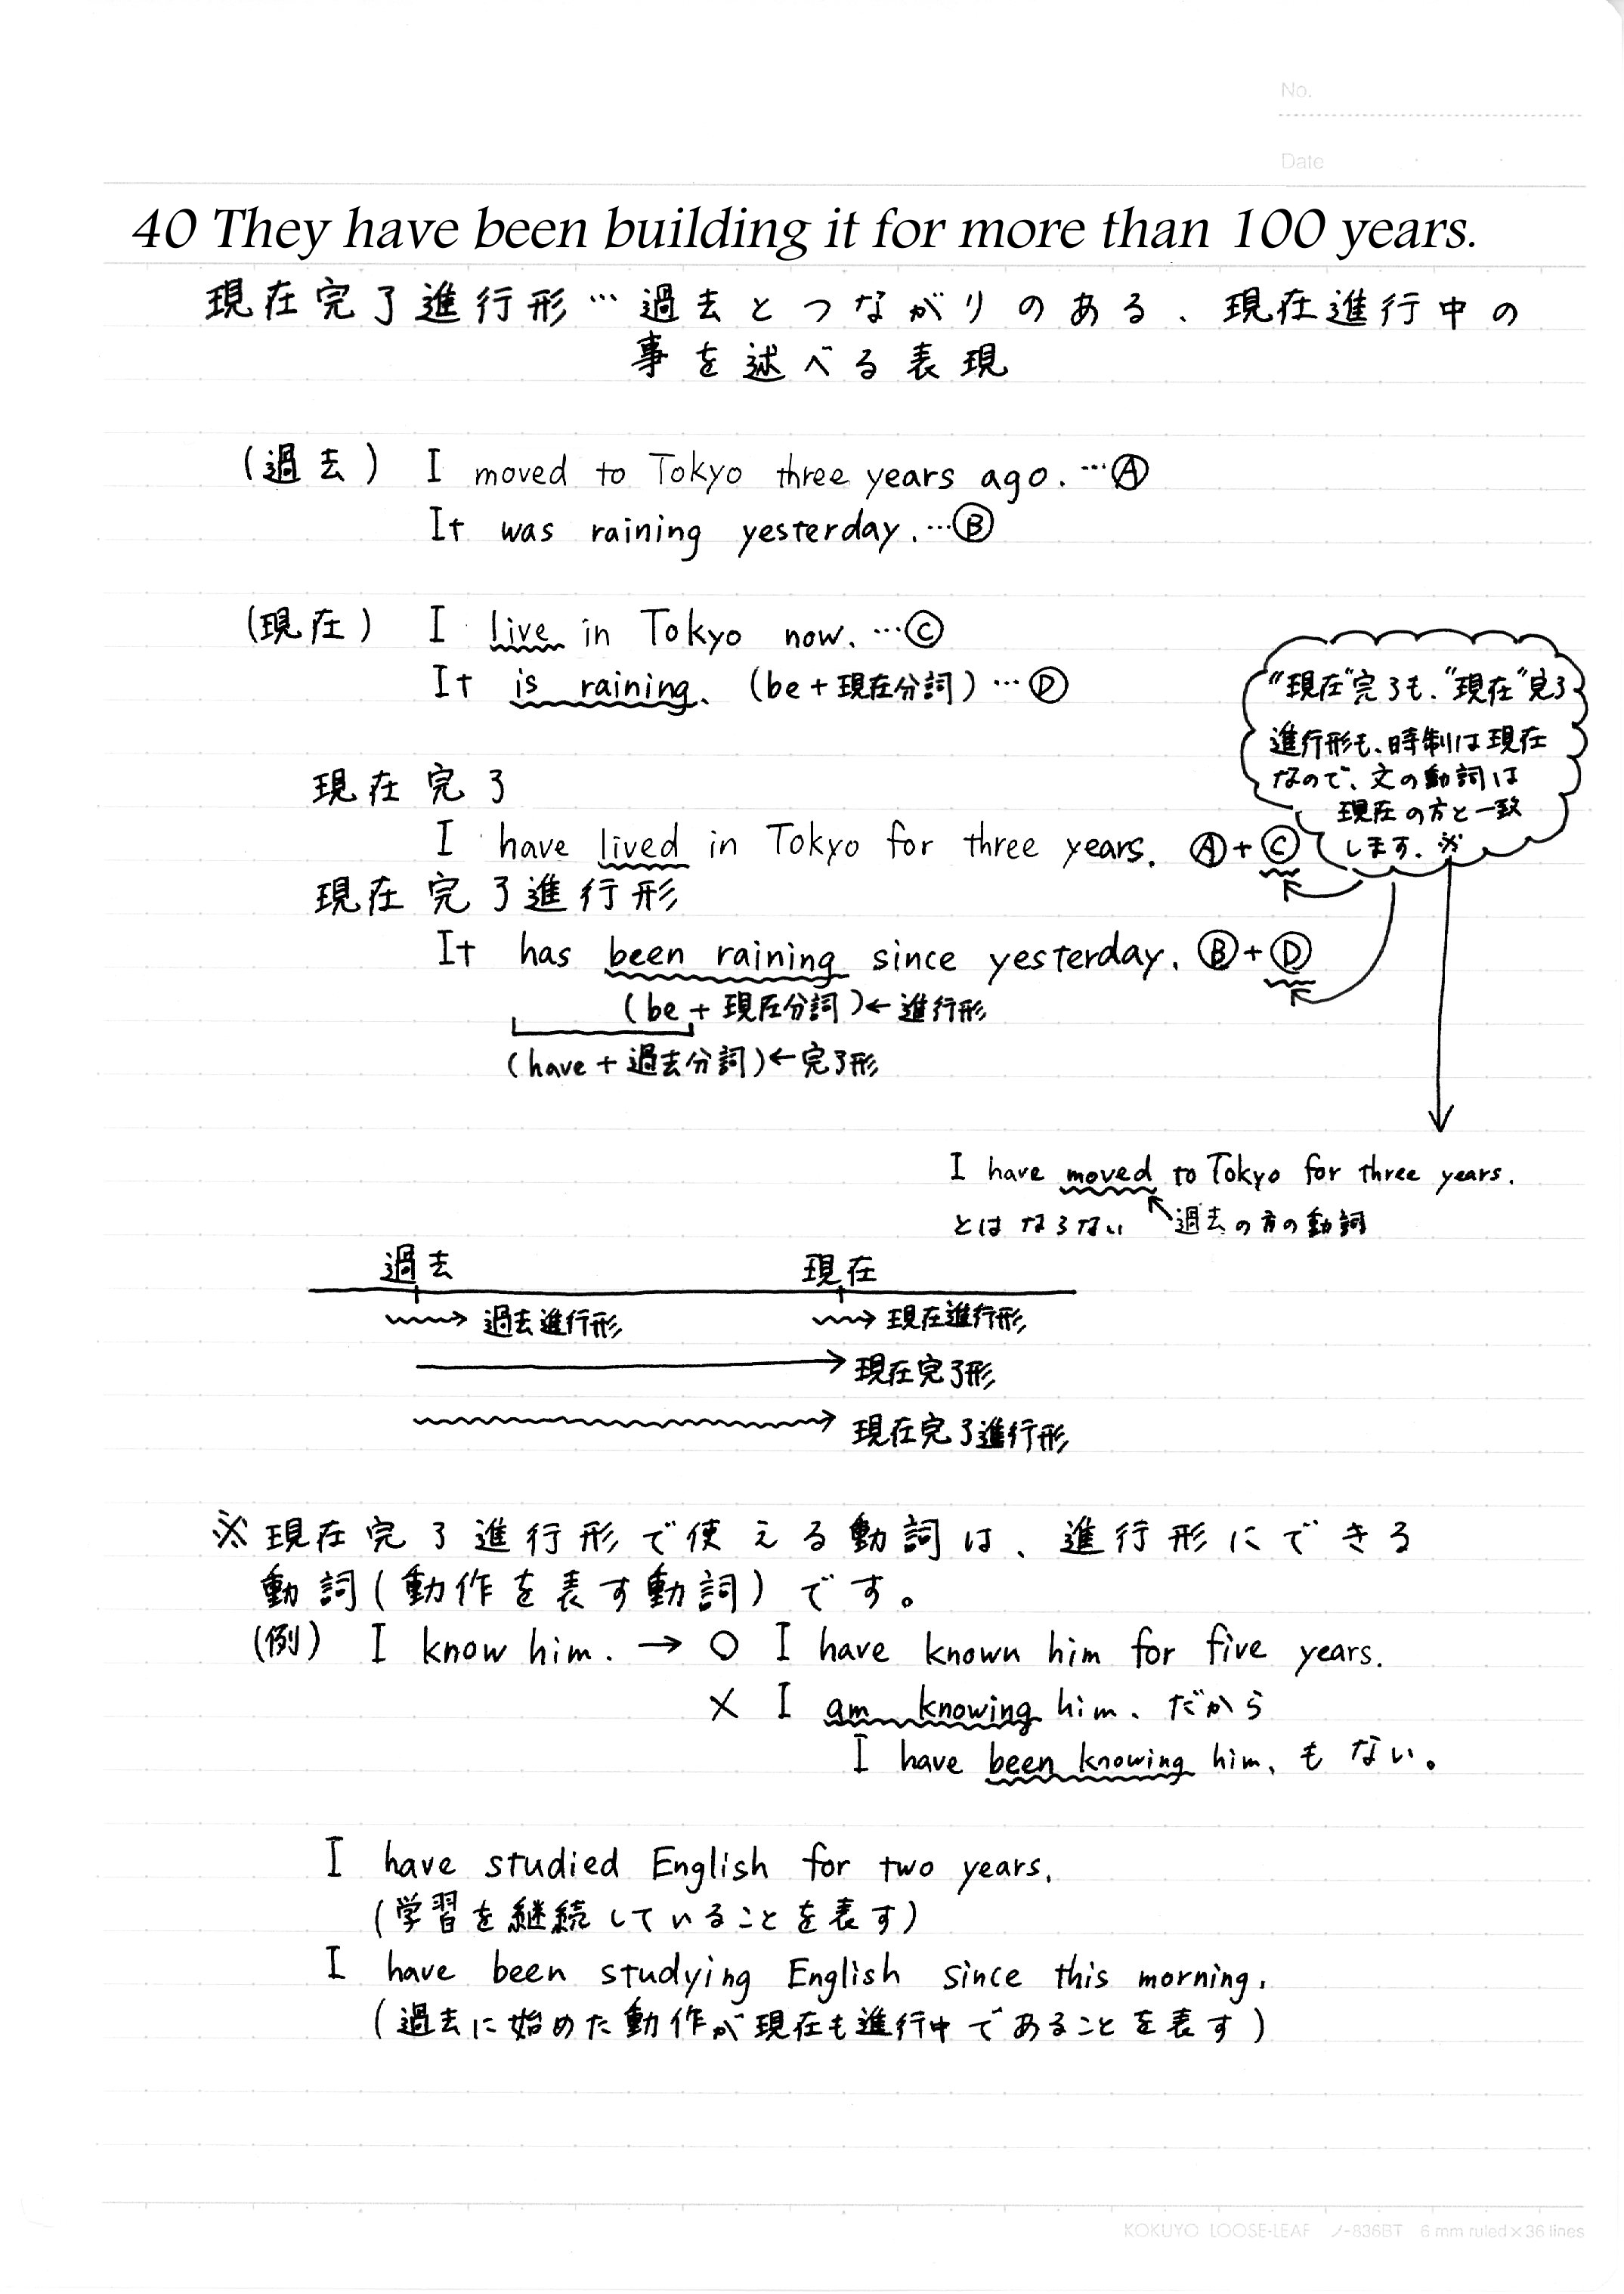 No.
Date
40 They have been building it for more than 100 years.
現在完了進行形…過去とつながりのある、現在進行中の
事を述べる表現
(過去) I moved to Tokyo three years ago. …Ⓐ
It was raining yesterday. …Ⓑ
(現在) I live in Tokyo now. …Ⓒ
It is raining. (be+現在分詞) …Ⓓ
"現在"完了も、"現在"完了
進行形も、時制は現在
なので、文の動詞は
現在の方と一致
します。※
現在完了
I have lived in Tokyo for three years. Ⓐ+Ⓒ
現在完了進行形
It has been raining since yesterday. Ⓑ+Ⓓ
(be+現在分詞)←進行形
(have+過去分詞)←完了形
I have moved to Tokyo for three years.
とはならない 過去の方の動詞
過去 現在
過去進行形 現在進行形
現在完了形
現在完了進行形
※現在完了進行形で使える動詞は、進行形にできる
動詞(動作を表す動詞)です。
(例) I know him. → ○ I have known him for five years.
× I am knowing him. だから
I have been knowing him. もない。
I have studied English for two years.
(学習を継続していることを表す)
I have been studying English since this morning.
(過去に始めた動作が現在も進行中であることを表す)
KOKUYO LOOSE-LEAF ノ-836BT 6 mm ruled×36 lines